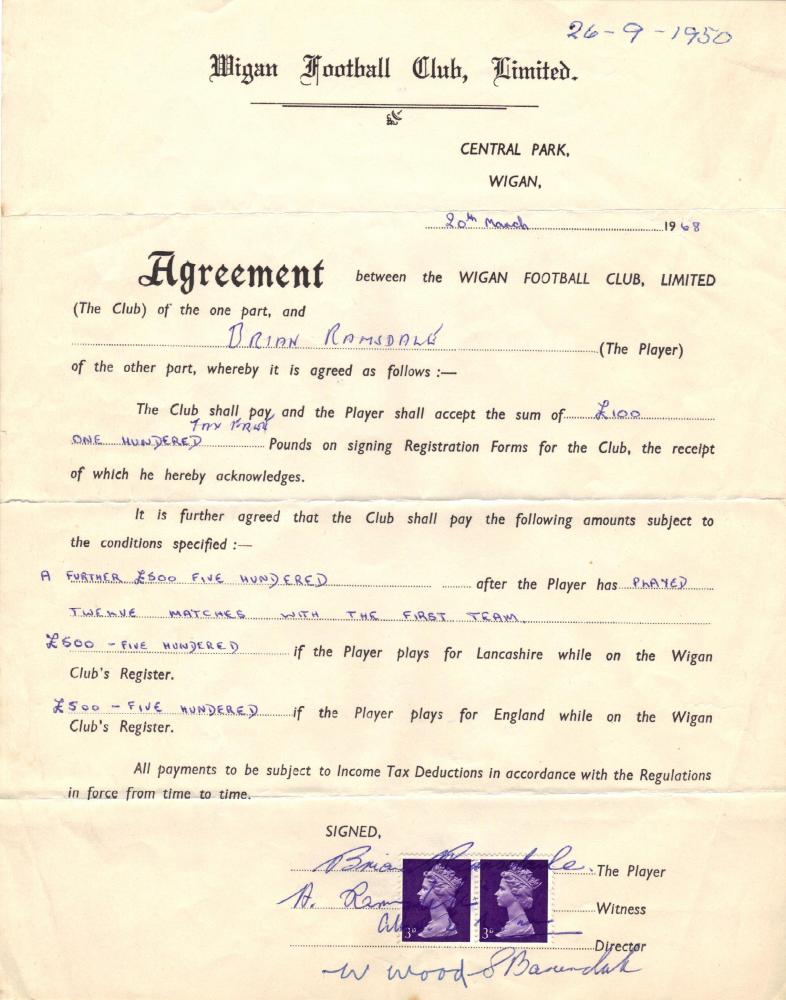 26-9-1950
Wigan Football Club, Limited.
CENTRAL PARK,
WIGAN,
20th March 1968
Agreement between the WIGAN FOOTBALL CLUB, LIMITED
(The Club) of the one part, and
BRIAN RAMSDALE (The Player)
of the other part, whereby it is agreed as follows :—
The Club shall pay, and the Player shall accept the sum of £100
TAX FREE
ONE HUNDERED Pounds on signing Registration Forms for the Club, the receipt
of which he hereby acknowledges.
It is further agreed that the Club shall pay the following amounts subject to
the conditions specified :—
A FURTHER £500 FIVE HUNDERED after the Player has PLAYED
TWELVE MATCHES WITH THE FIRST TEAM.
£500 - FIVE HUNDERED if the Player plays for Lancashire while on the Wigan
Club's Register.
£500 - FIVE HUNDERED if the Player plays for England while on the Wigan
Club's Register.
All payments to be subject to Income Tax Deductions in accordance with the Regulations
in force from time to time.
SIGNED,
Brian Ramsdale. The Player
A. Witness
3D 3D
Director
W Wood